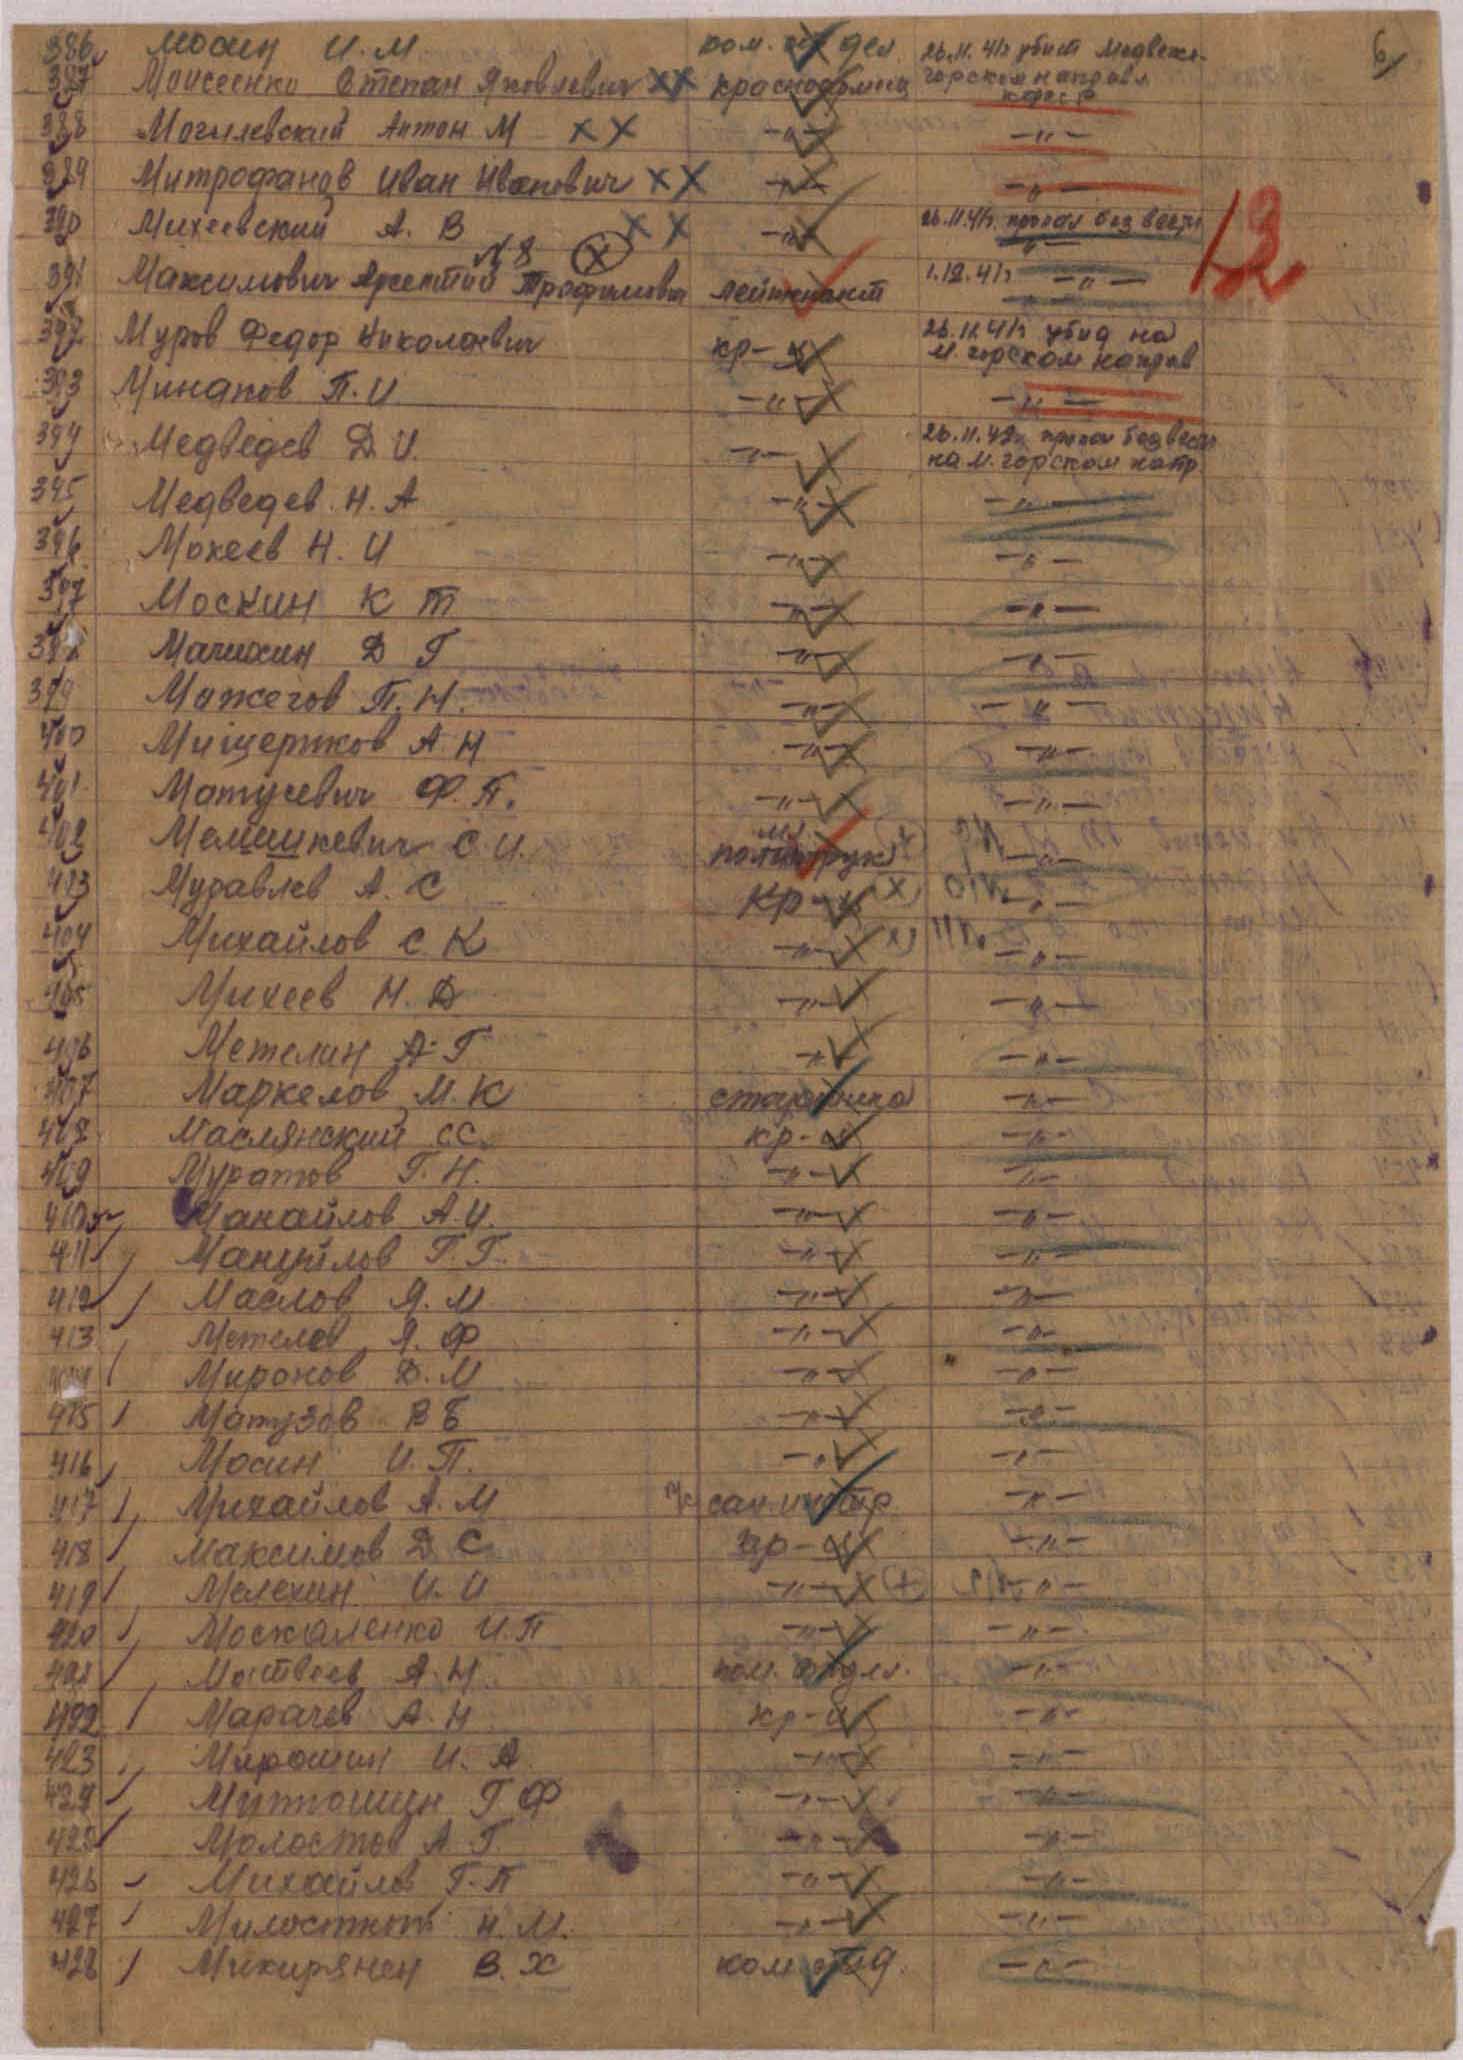 6
386 Мосин И. М ком. отдел. 26.11.41г убит Медвежь-
387 Моисеенко Степан Яковлевич ХХ красноармеец горском направл
КФССР
388 Могилевский Антон М ХХ -"- -"-
389 Митрофанов Иван Иванович ХХ -"- -"-
390 Михеевский А. В ХХ -"- 26.11.41г. пропал без вести
№8 Х -"-
13
391 Максимович Арсентий Трофимович лейтенант 1.12.41г -"-
392 Муров Федор Николаевич кр-ц 26.11.41г убид на
М. горском направ
393 Минаков П. И -"- -"-
394 Медведев Д. И. -"- 26.11.42г. пропал без вести
на М. горском напр
395 Медведев Н. А -"- -"-
396 Мокеев Н. И -"- -"-
397 Москин К Т -"- -"-
398 Мачихин Д Г -"- -"-
399 Мажегов П. Н. -"- -"-
400 Мищеряков А Н -"- -"-
401 Матусевич Ф. П. -"- -"-
402 Мемешкевич С. И. мл. политрук (+) №9 -"-
403 Муравлев А. С Кр-ц (х) №10 -"-
404 Михайлов С. К -"- (х) №11 -"-
405 Михеев Н. Д -"- -"-
406 Метелин А. Г -"- -"-
407 Маркелов М. К старшина -"-
408 Маслянский С С. кр-ц -"-
409 Муратов Г. Н. -"- -"-
410 Манайлов А. И. -"- -"-
411 Мануйлов Г. Г. -"- -"-
412 Маслов Я. М -"- -"-
413 Метелев Я. Ф -"- -"-
414 Миронов Д. М -"- -"-
415 Матузов В Б -"- -"-
416 Мосин И. П. -"- -"-
417 Михайлов А. М сан. инстр. -"-
418 Максимов Д С кр-ц -"-
419 Мелехин И. И -"- (+) №12 -"-
420 Москаленко И. П -"- -"-
421 Матвеев А. Н. ком. отдел. -"-
422 Марачев А. Н кр-ц -"-
423 Мирошин И. А. -"- -"-
424 Г Ф -"- -"-
425 Молостов А Г. -"- -"-
426 Михайлов Г. П -"- -"-
427 Н. М. -"- -"-
428 Микирянен В. Х ком отд. -"-